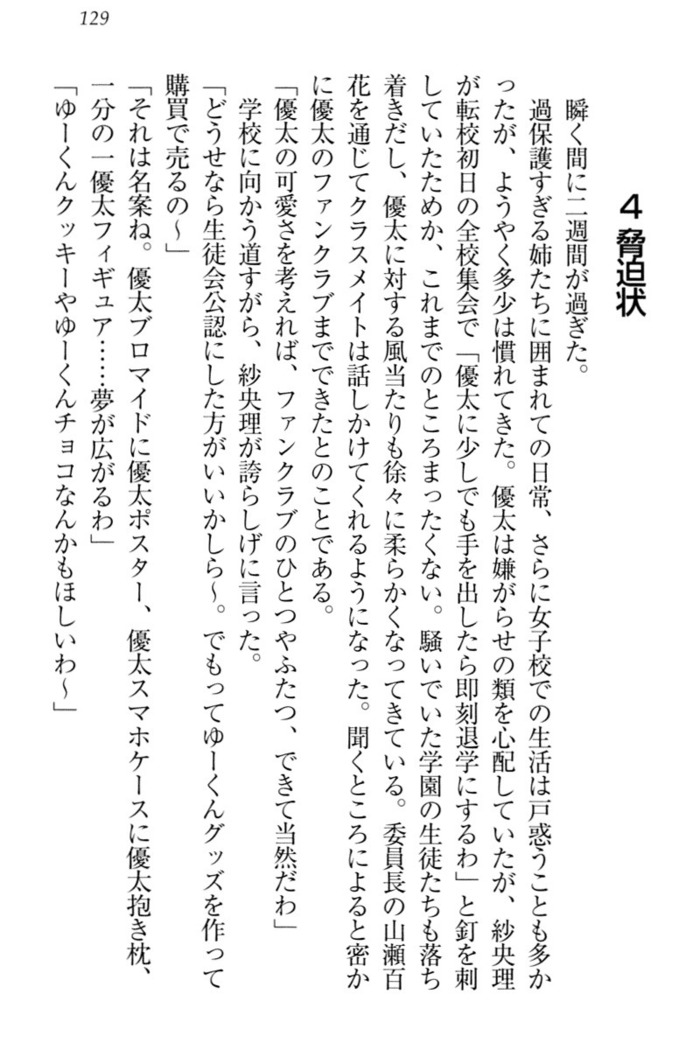 129
4 脅迫状
瞬く間に二週間が過ぎた。
過保護すぎる姉たちに囲まれての日常、さらに女子校での生活は戸惑うことも多か
ったが、ようやく多少は慣れてきた。優太は嫌がらせの類を心配していたが、紗央理
が転校初日の全校集会で「優太に少しでも手を出したら即刻退学にするわ」と釘を刺
していたためか、これまでのところまったくない。騒いでいた学園の生徒たちも落ち
着きだし、優太に対する風当たりも徐々に柔らかくなってきている。委員長の山瀬百
花を通じてクラスメイトは話しかけてくれるようになった。聞くところによると密か
に優太のファンクラブまでできたとのことである。
「優太の可愛さを考えれば、ファンクラブのひとつやふたつ、できて当然だわ」
学校に向かう道すがら、紗央理が誇らしげに言った。
「どうせなら生徒会公認にした方がいいかしら～。でもってゆーくんグッズを作って
購買で売るの～」
「それは名案ね。優太ブロマイドに優太ポスター、優太スマホケースに優太抱き枕、
一分の一優太フィギュア……夢が広がるわ」
「ゆーくんクッキーやゆーくんチョコなんかもほしいわ～」